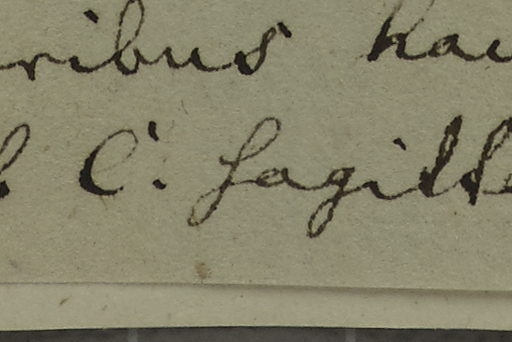 ribus hau
C. Sagitt